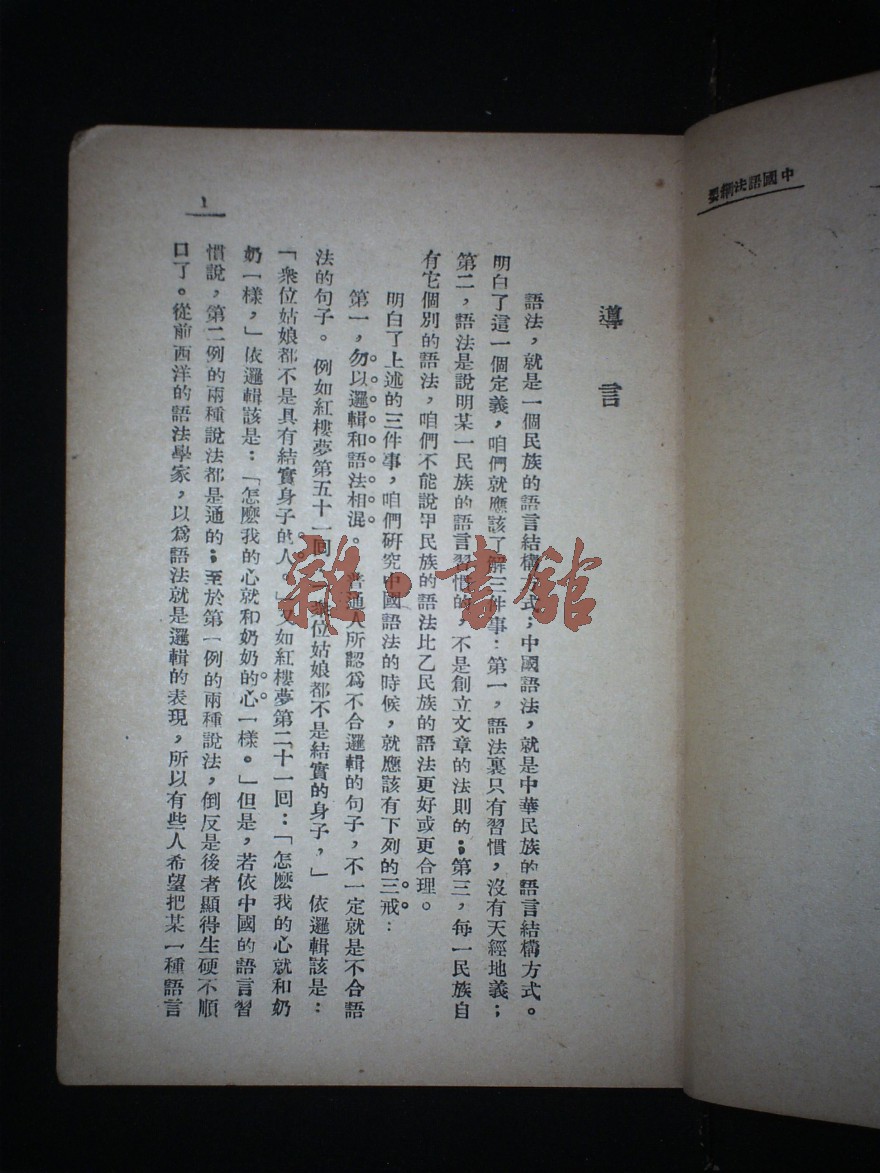 中國語法綱要
導言
語法，就是一個民族的語言結構方式；中國語法，就是中華民族的語言結構方式。
明白了這一個定義，咱們就應該了解三件事：第一，語法裏只有習慣，沒有天經地義；
第二，語法是說明某一民族的語言習慣的，不是創立文章的法則的；第三，每一民族自
有它個別的語法，咱們不能說甲民族的語法比乙民族的語法更好或更合理。
明白了上述的三件事，咱們研究中國語法的時候，就應該有下列的三戒：
第一，勿以邏輯和語法相混。普通人所認爲不合邏輯的句子，不一定就是不合語
法的句子。例如紅樓夢第五十一回「衆位姑娘都不是結實的身子，」依邏輯該是：
「衆位姑娘都不是具有結實身子的人。」又如紅樓夢第二十一回：「怎麼我的心就和奶
奶一樣，」依邏輯該是：「怎麼我的心就和奶奶的心一樣。」但是，若依中國的語言習
慣說，第二例的兩種說法都是通的；至於第一例的兩種說法，倒反是後者顯得生硬不順
口了。從前西洋的語法學家，以爲語法就是邏輯的表現，所以有些人希望把某一種語言
1
雜·書館